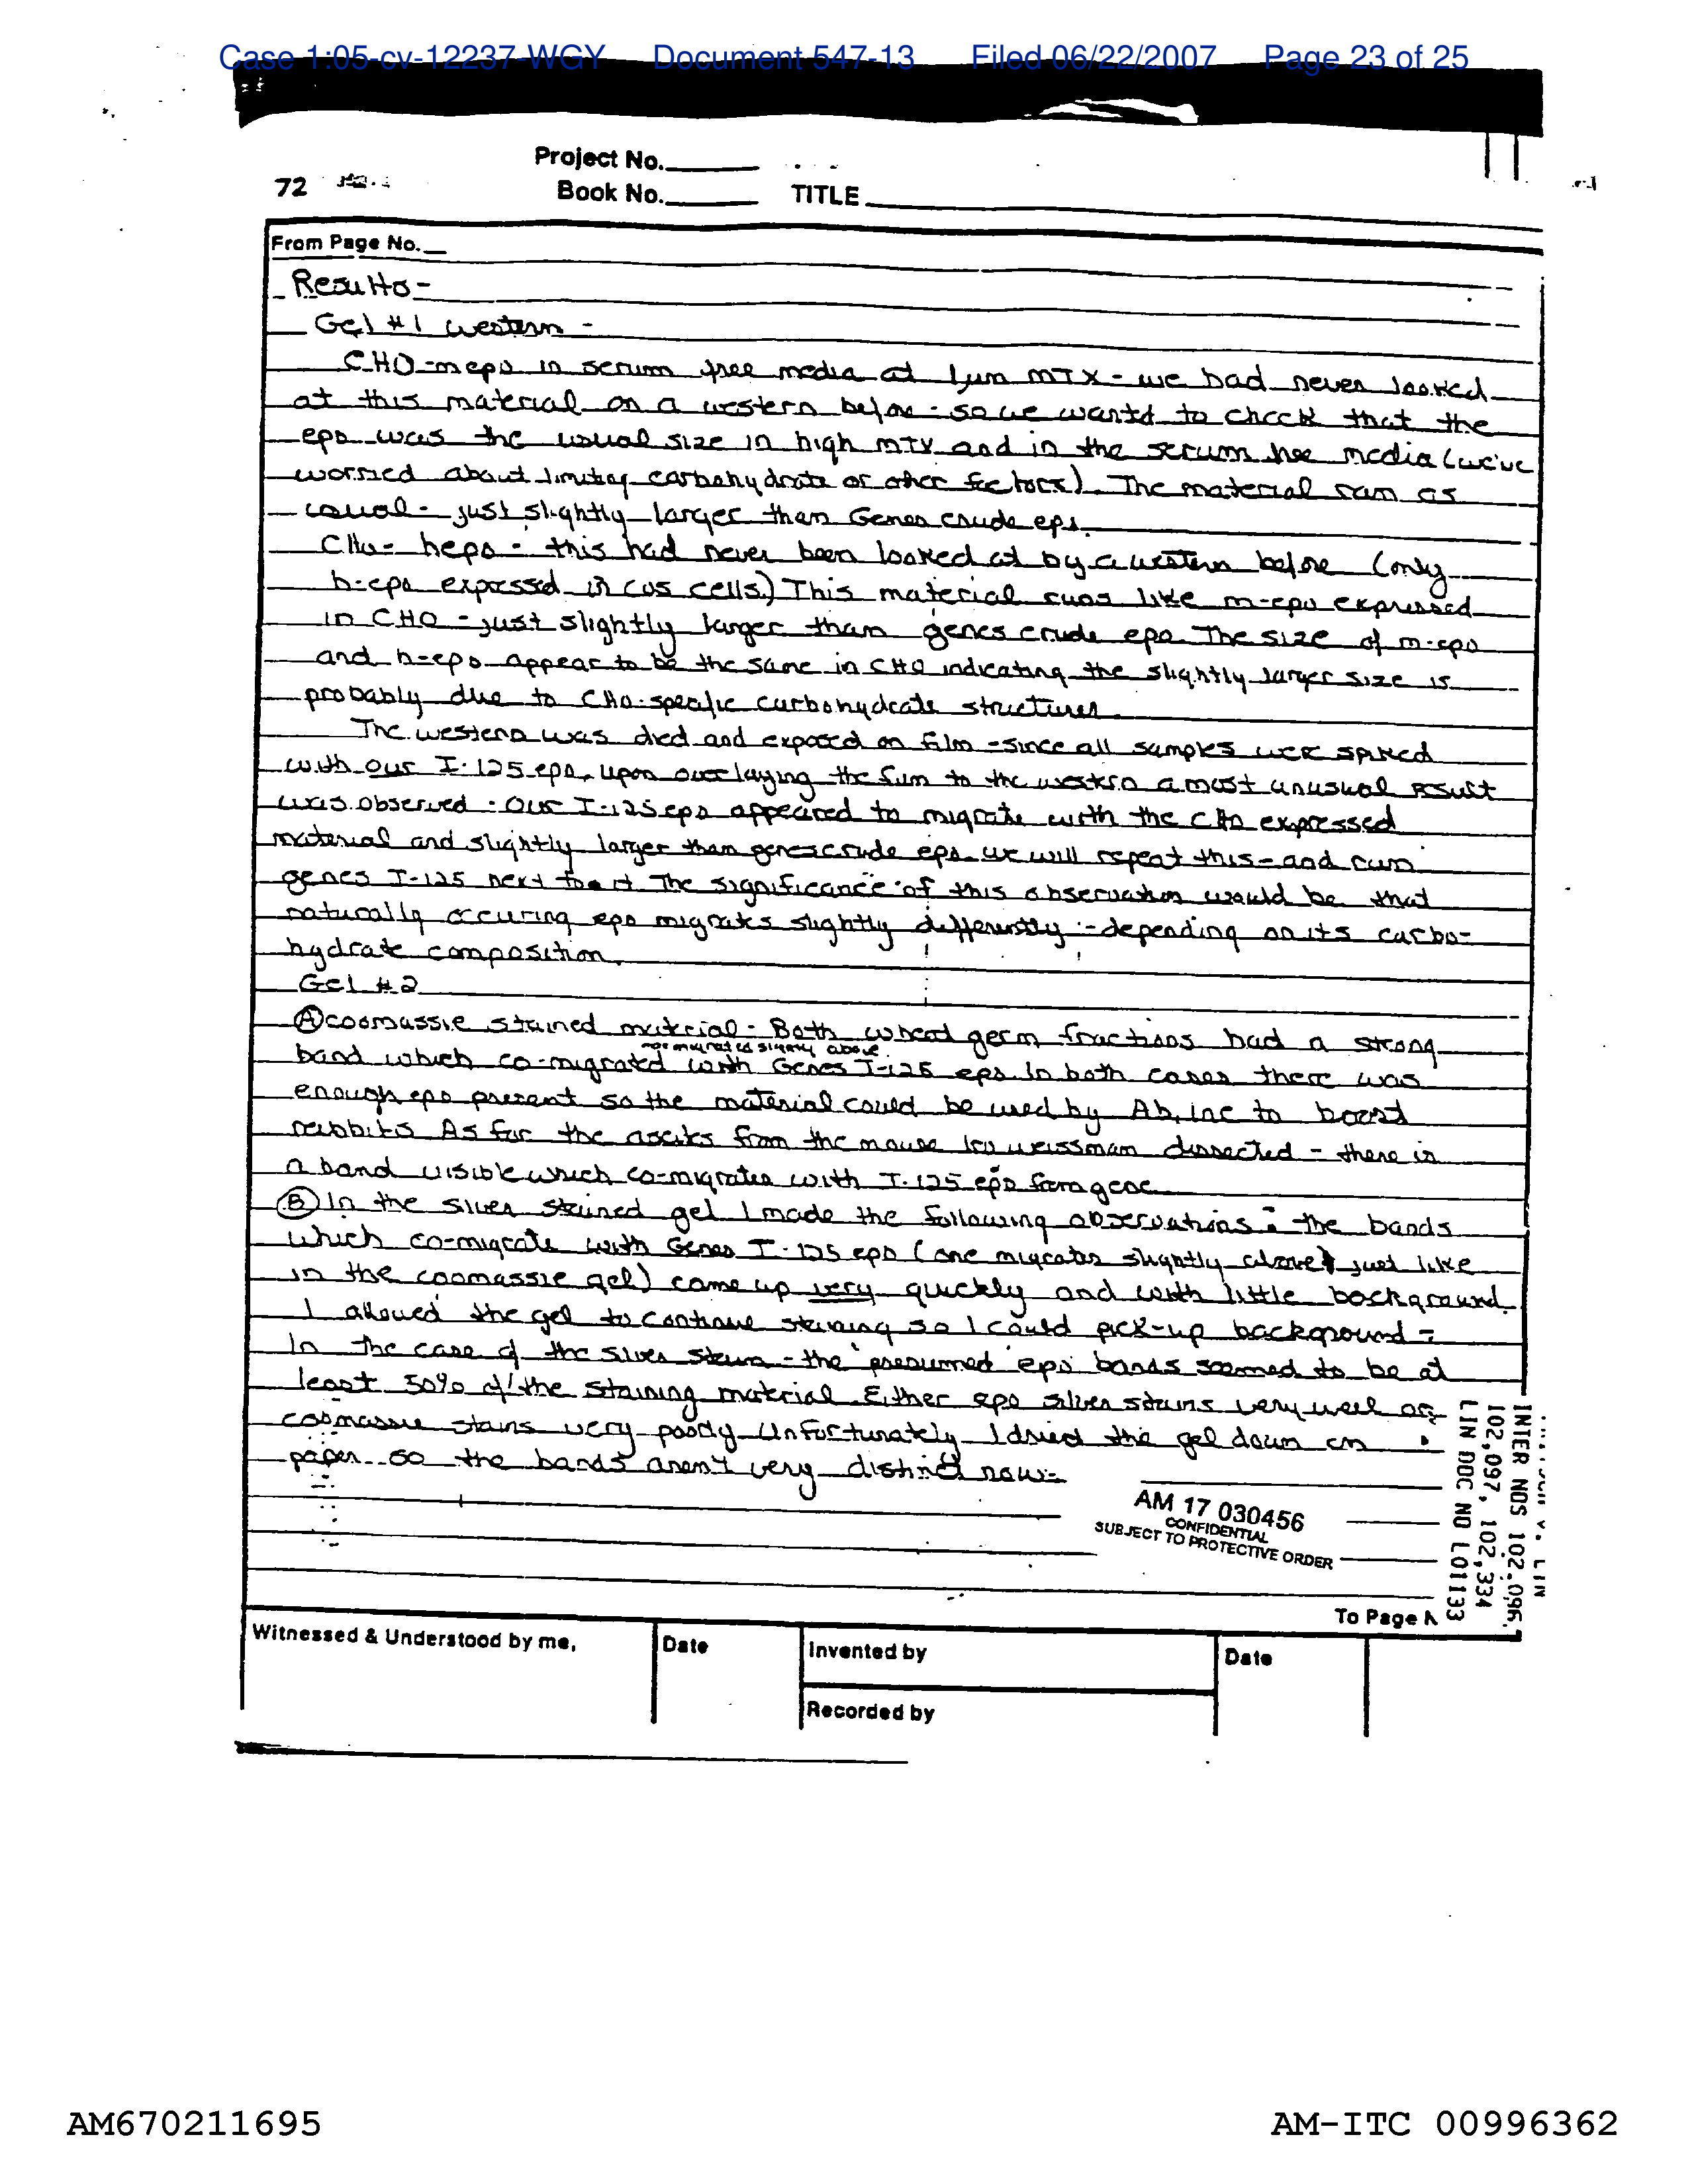 Case 1:05-cv-12237-WGY Document 547-13 Filed 06/22/2007 Page 23 of 25
Project No.
72
Book No. TITLE
From Page No.
Results-
Gel #1 western -
CHO-mepo in serum free media at 1µm MTX - we had never looked
at this material on a western before - so we wantd to check that the
epo was the usual size in high MTX and in the serum free media (we've
worried about limiting carbohydrate or other factors). The material ran as
usual - just slightly larger than Genes crude epo.
CHO- hepo - this had never been looked at by a western before (only
h-epo expressed in cos cells.) This material runs like m-epo expressed
in CHO - just slightly larger than genes crude epo. The size of m-epo
and h-epo appear to be the same in CHO indicating the slightly larger size is
probably due to CHO-specific carbohydrate structures.
The western was dried and exposed on film - since all samples were spiked
with our I-125 epo, upon overlaying the film to the western a most unusual result
was observed - Our I-125 epo appeared to migrate with the CHO expressed
material and slightly larger than genes crude epo. We will repeat this - and run
genes I-125 next to it. The significance of this observation would be that
naturally occuring epo migrates slightly differently - depending on its carbo-
hydrate composition.
Gel #2
(A) coomassie stained material - Both wheat germ fractions had a strong
or migrated slightly above
band which co-migrated with Genes I-125 epo. In both cases there was
enough epo present so the material could be used by Ab, inc to boost
rabbits. As for the ascites from the mouse weissman dissected - there is
a band visible which co-migrates with I-125 epo from gene
(B) In the silver stained gel I made the following observations: the bands
which co-migrate with Genes I-125 epo (one migrates slightly above just like
in the coomassie gel) came up very quickly and with little background.
I allowed the gel to continue staining so I could pick-up background -
In the case of the silver stain - the 'presumed' epo bands seemed to be at
least 50% of the staining material. Either epo silver stains very well or
coomassie stains very poorly. Unfortunately I dried the gel down on
paper so the bands aren't very distinct now.
AM 17 030456
CONFIDENTIAL
SUBJECT TO PROTECTIVE ORDER
V. LIN
INTER NOS 102,096,
102,097, 102,334
LIN DOC NO L01133
To Page N
Witnessed & Understood by me,
Date
Invented by
Date
Recorded by
AM670211695
AM-ITC 00996362